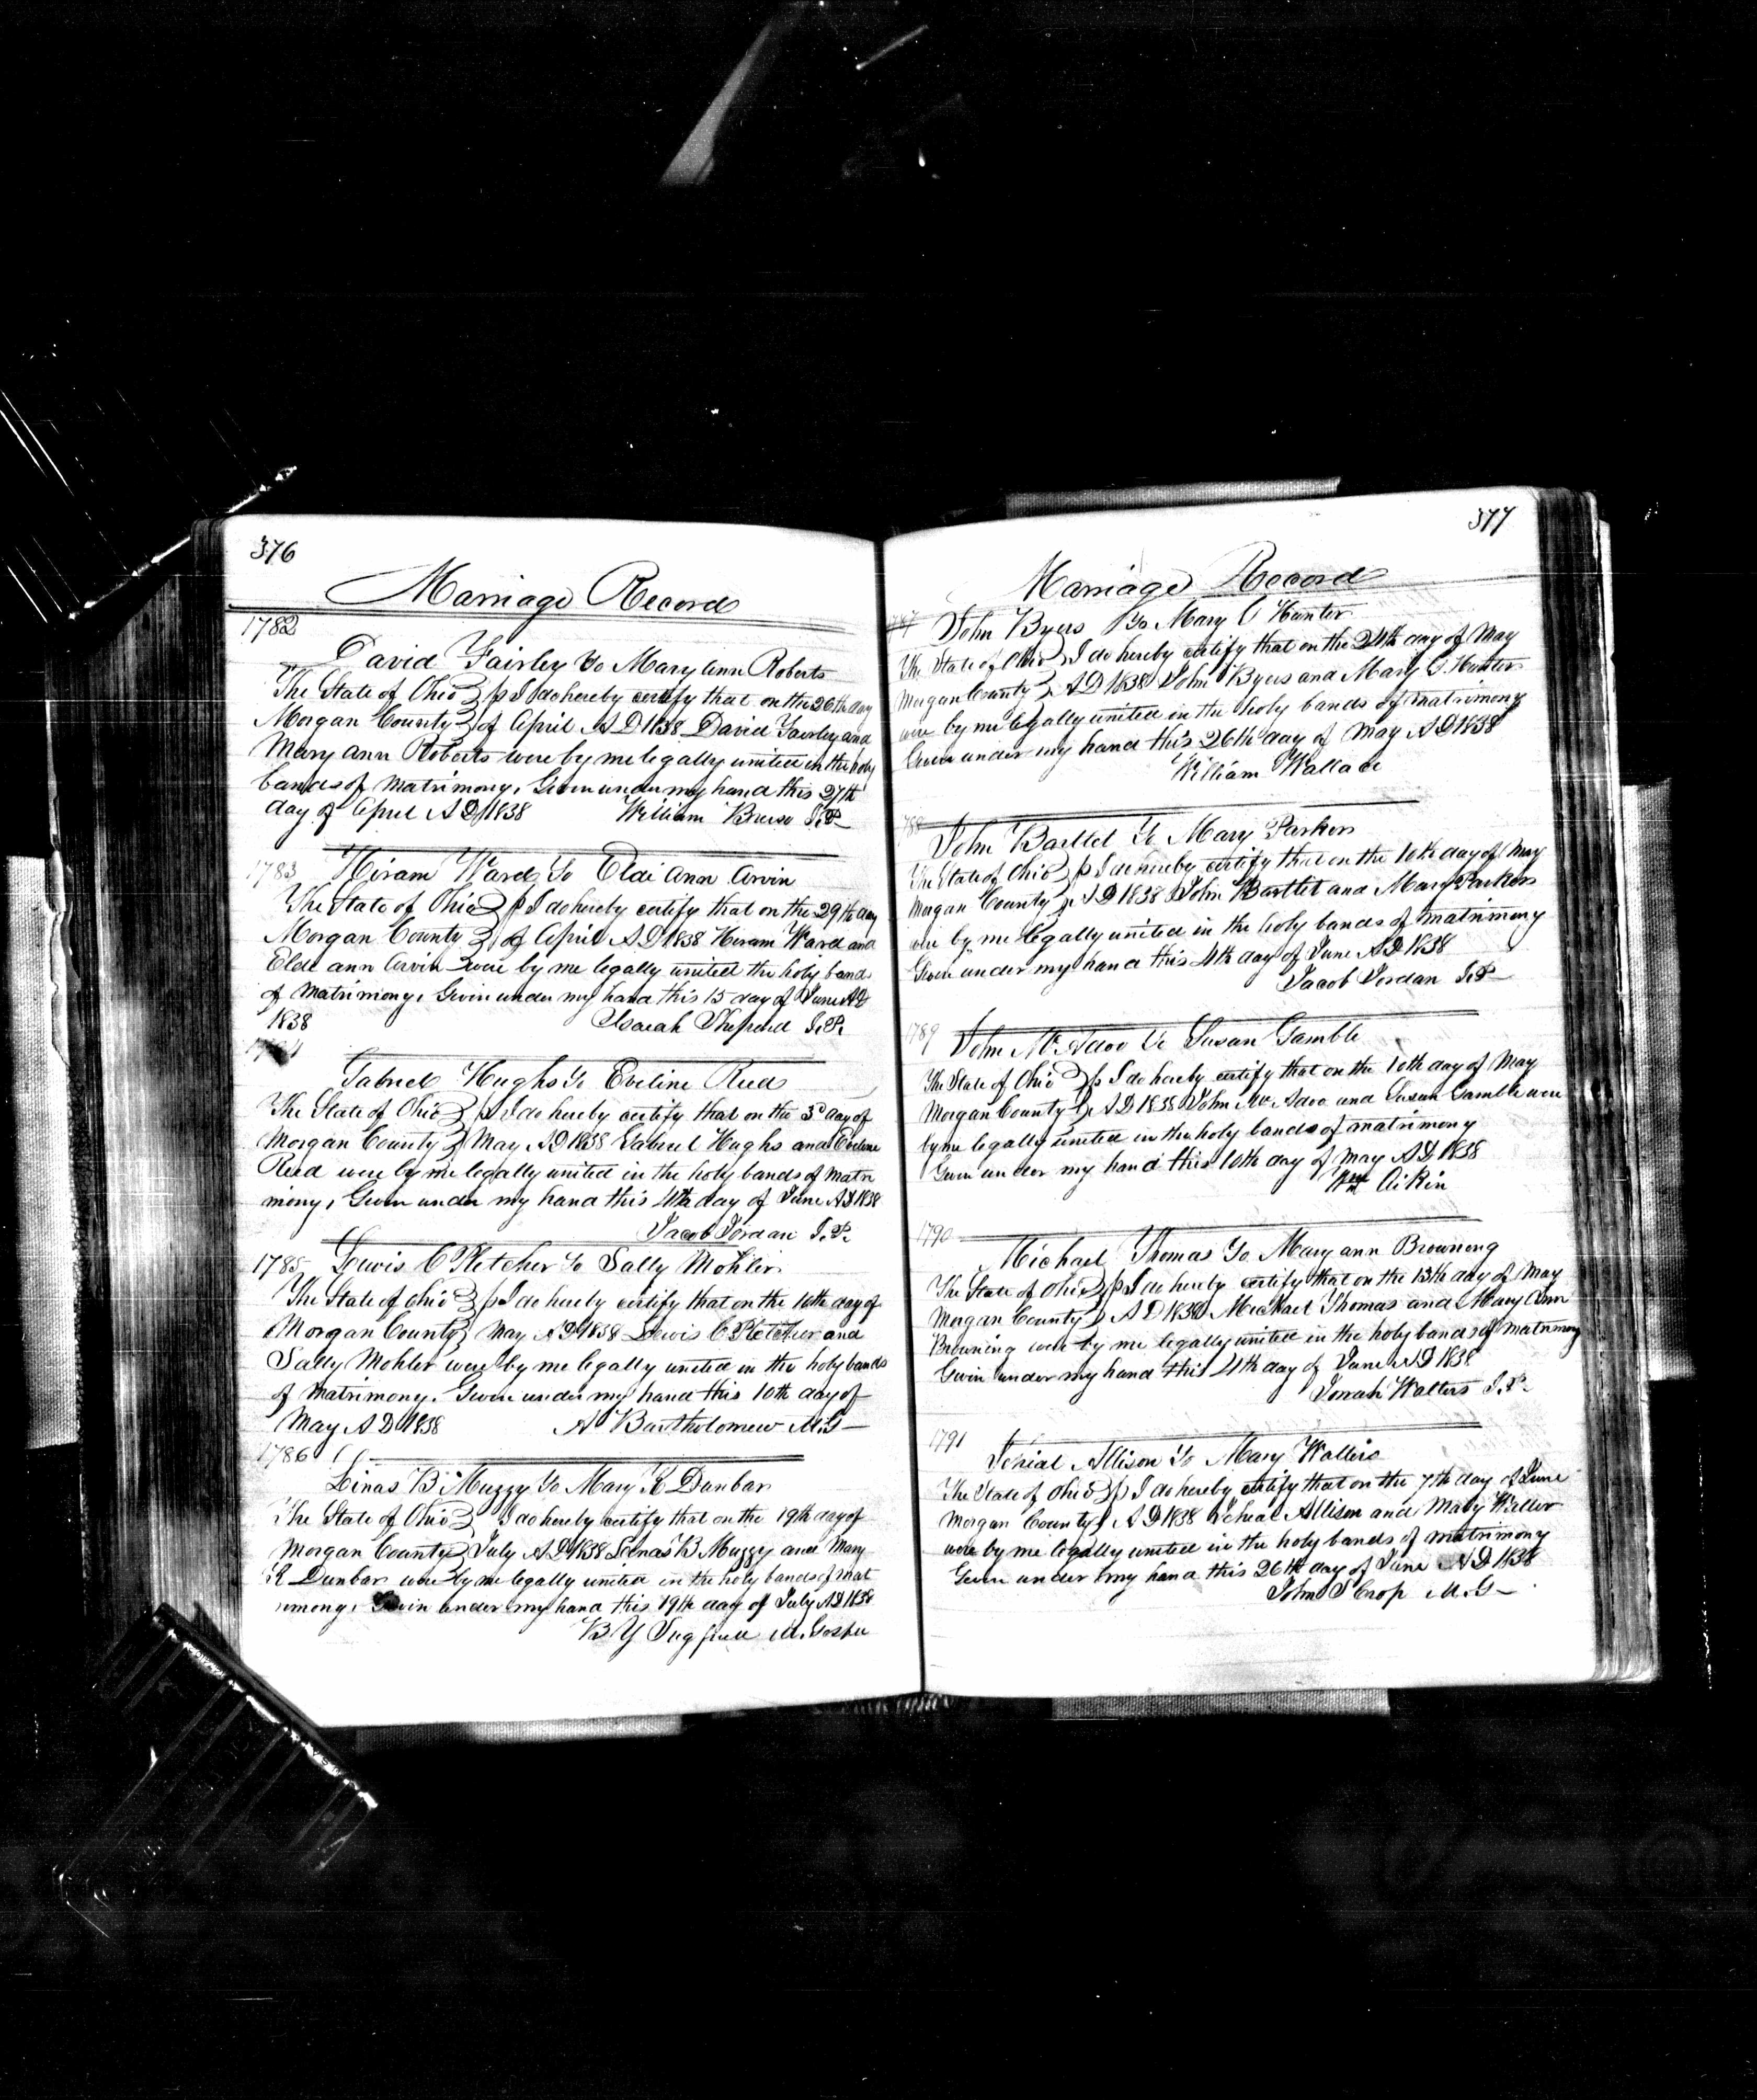 376
Marriage Record
1782
David Fairley to Mary Ann Roberts
The State of Ohio } ss I do hereby certify that on the 26th day
Morgan County } of April A D 1838 David Fairley and
Mary ann Roberts were by me legally united in the holy
bands of matrimony, Given under my hand this 27th
day of April A D 1838 William J.P.
1783 Hiram Ward To Ann Arvin
The State of Ohio } ss I do hereby certify that on the 29th day
Morgan County } of April A D 1838 Hiram Ward and
ann Arvin were by me legally united the holy bands
of matrimony, Given under my hand this 15 day of June A D
1838 Isaiah Sheperd J.P.
Gabriel Hughs To Eveline Reed
The State of Ohio } ss I do hereby certify that on the 3d day of
Morgan County } May A D 1838 Gabriel Hughs and Eveline
Reed were by me legally united in the holy bands of matri
mony, Given under my hand this 4th day of June A D 1838
Jacob Jordan J.P.
1785 Lewis C Pletcher To Sally Mohler
The State of Ohio } ss I do hereby certify that on the 10th day of
Morgan County } May A D 1838 Lewis C Pletcher and
Sally Mohler were by me legally united in the holy bands
of matrimony. Given under my hand this 10th day of
May A D 1838 A Bartholomew M.G
1786
Linas B Muzzy To Mary K Dunbar
The State of Ohio } I do hereby certify that on the 19th day of
Morgan County } July A D 1838 Linas B Muzzy and Mary
K Dunbar were by me legally united in the holy bands of mat
rimony, Given under my hand this 19th day of July A D 1838
B Y M. Gospel
377
Marriage Record
John Byers To Mary C Hunter
The State of Ohio } I do hereby certify that on the 24th day of May
Morgan County } A D 1838 John Byers and Mary C. Hunter
were by me legally united in the holy bands of matrimony
Given under my hand this 26th day of May A D 1838
William Wallace
John Bartlet To Mary Parker
The State of Ohio } ss I do hereby certify that on the 10th day of May
Morgan County } A D 1838 John Bartlet and Mary Parker
were by me legally united in the holy bands of matrimony
Given under my hand this 4th day of June A D 1838
Jacob Jordan J.P
1789 John McAdoo To Susan Gamble
The State of Ohio } ss I do hereby certify that on the 10th day of May
Morgan County } A D 1838 John McAdoo and Susan Gamble were
by me legally united in the holy bands of matrimony
Given under my hand this 10th day of May A D 1838
Wm Aikin
1790
Michael Thomas To Mary ann Browning
The State of Ohio } ss I do hereby certify that on the 13th day of May
Morgan County } A D 1838 Michael Thomas and Mary Ann
Browning were by me legally united in the holy bands of matrimony
Given under my hand this 4th day of June A D 1838
Jonah Walters J.P.
1791
Jehial Allison To Mary Waller
The State of Ohio } ss I do hereby certify that on the 7th day of June
Morgan County } A D 1838 Jehial Allison and Mary Waller
were by me legally united in the holy bands of matrimony
Given under my hand this 26th day of June A D 1838
John M.G